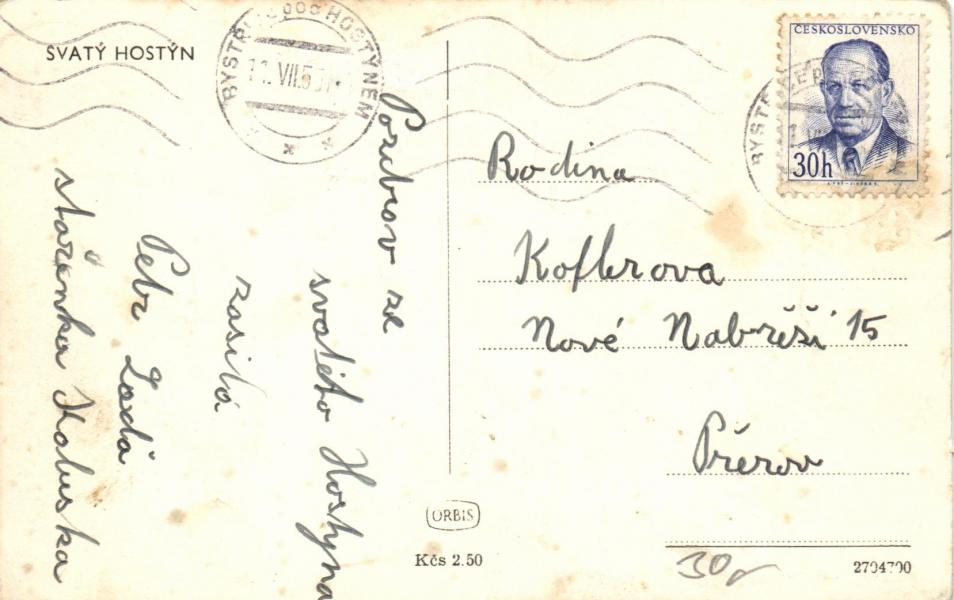 SVATÝ HOSTÝN
BYSTŘICE POD HOSTÝNEM
ČESKOSLOVENSKO
30h
Pozdrav ze
svatého Hostýna
zasílá
Petr Lada
stařenka
Rodina
Koflerova
Nové Nabřeší 15
Přerov
ORBIS
Kčs 2.50
30